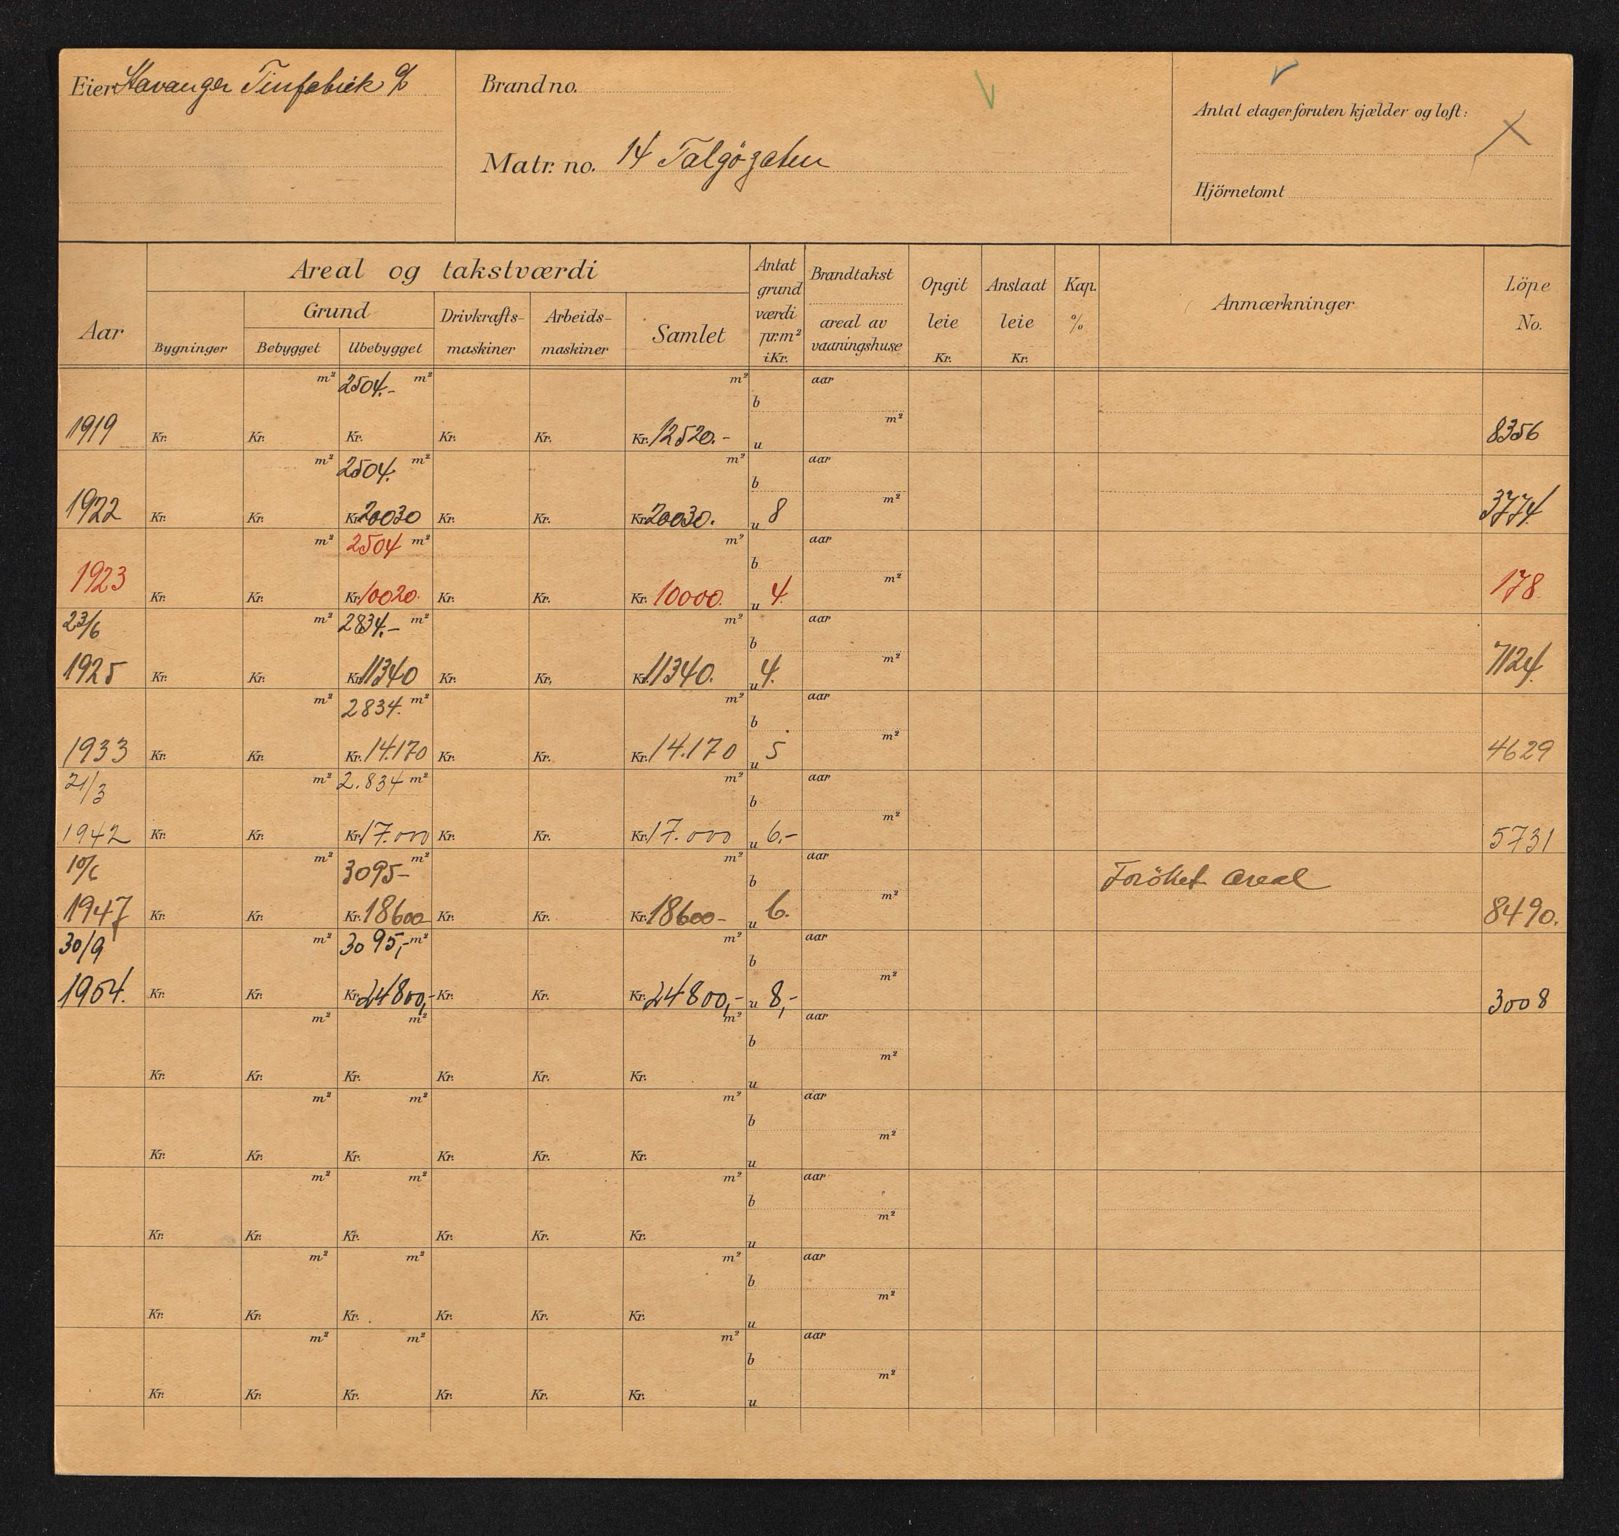 Eier Stavanger Tinfabrik a/s
Brand no.
Matr. no. 14 Talgögaten
Antal etager foruten kjælder og loft:
Hjörnetomt
Aar
Areal og takstværdi
Grund
Bygninger
Bebygget
Ubebygget
Drivkrafts-
maskiner
Arbeids-
maskiner
Samlet
Antat
grund
værdi
pr. m²
i Kr.
Brandtakst
areal av
vaaningshuse
Opgit
leie
Kr.
Anslaat
leie
Kr.
Kap.
%
Anmærkninger
Löpe
No.
m² 2504.- m² m² aar
b
m²
1919 Kr. Kr. Kr. Kr. Kr. Kr. 12520.- u 8356
m² 2504. m² m² aar
b
m²
1922 Kr. Kr. Kr. 20030 Kr. Kr. Kr. 20030. u 8 3774
m² 2504 m² m² aar
b
m²
1923 Kr. Kr. Kr. 10020. Kr. Kr. Kr. 10000. u 4. 178
23/6 m² 2834.- m² m² aar
b
m²
1925 Kr. Kr. Kr. 11340 Kr. Kr. Kr. 11340. u 4. 7124
m² 2834. m² m² aar
b
m²
1933 Kr. Kr. Kr. 14.170 Kr. Kr. Kr. 14.170 u 5 4629
21/3 m² 2.834 m² m² aar
b
m²
1942 Kr. Kr. Kr. 17.000 Kr. Kr. Kr. 17.000 u 6.- 5731
10/6 m² 3095- m² m² aar
b Foröket areal
m²
1947 Kr. Kr. Kr. 18600 Kr. Kr. Kr. 18600- u 6. 8490.
30/9 m² 3095,- m² m² aar
b
m²
1954. Kr. Kr. Kr. 24800,- Kr. Kr. Kr. 24800,- u 8,- 3008
m² m² m² aar
b
m²
Kr. Kr. Kr. Kr. Kr. Kr. u
m² m² m² aar
b
m²
Kr. Kr. Kr. Kr. Kr. Kr. u
m² m² m² aar
b
m²
Kr. Kr. Kr. Kr. Kr. Kr. u
m² m² m² aar
b
m²
Kr. Kr. Kr. Kr. Kr. Kr. u
m² m² m² aar
b
m²
Kr. Kr. Kr. Kr. Kr. Kr. u